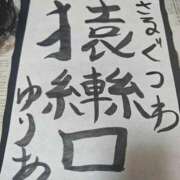 さるぐつわ
猿轡
ゆりあ